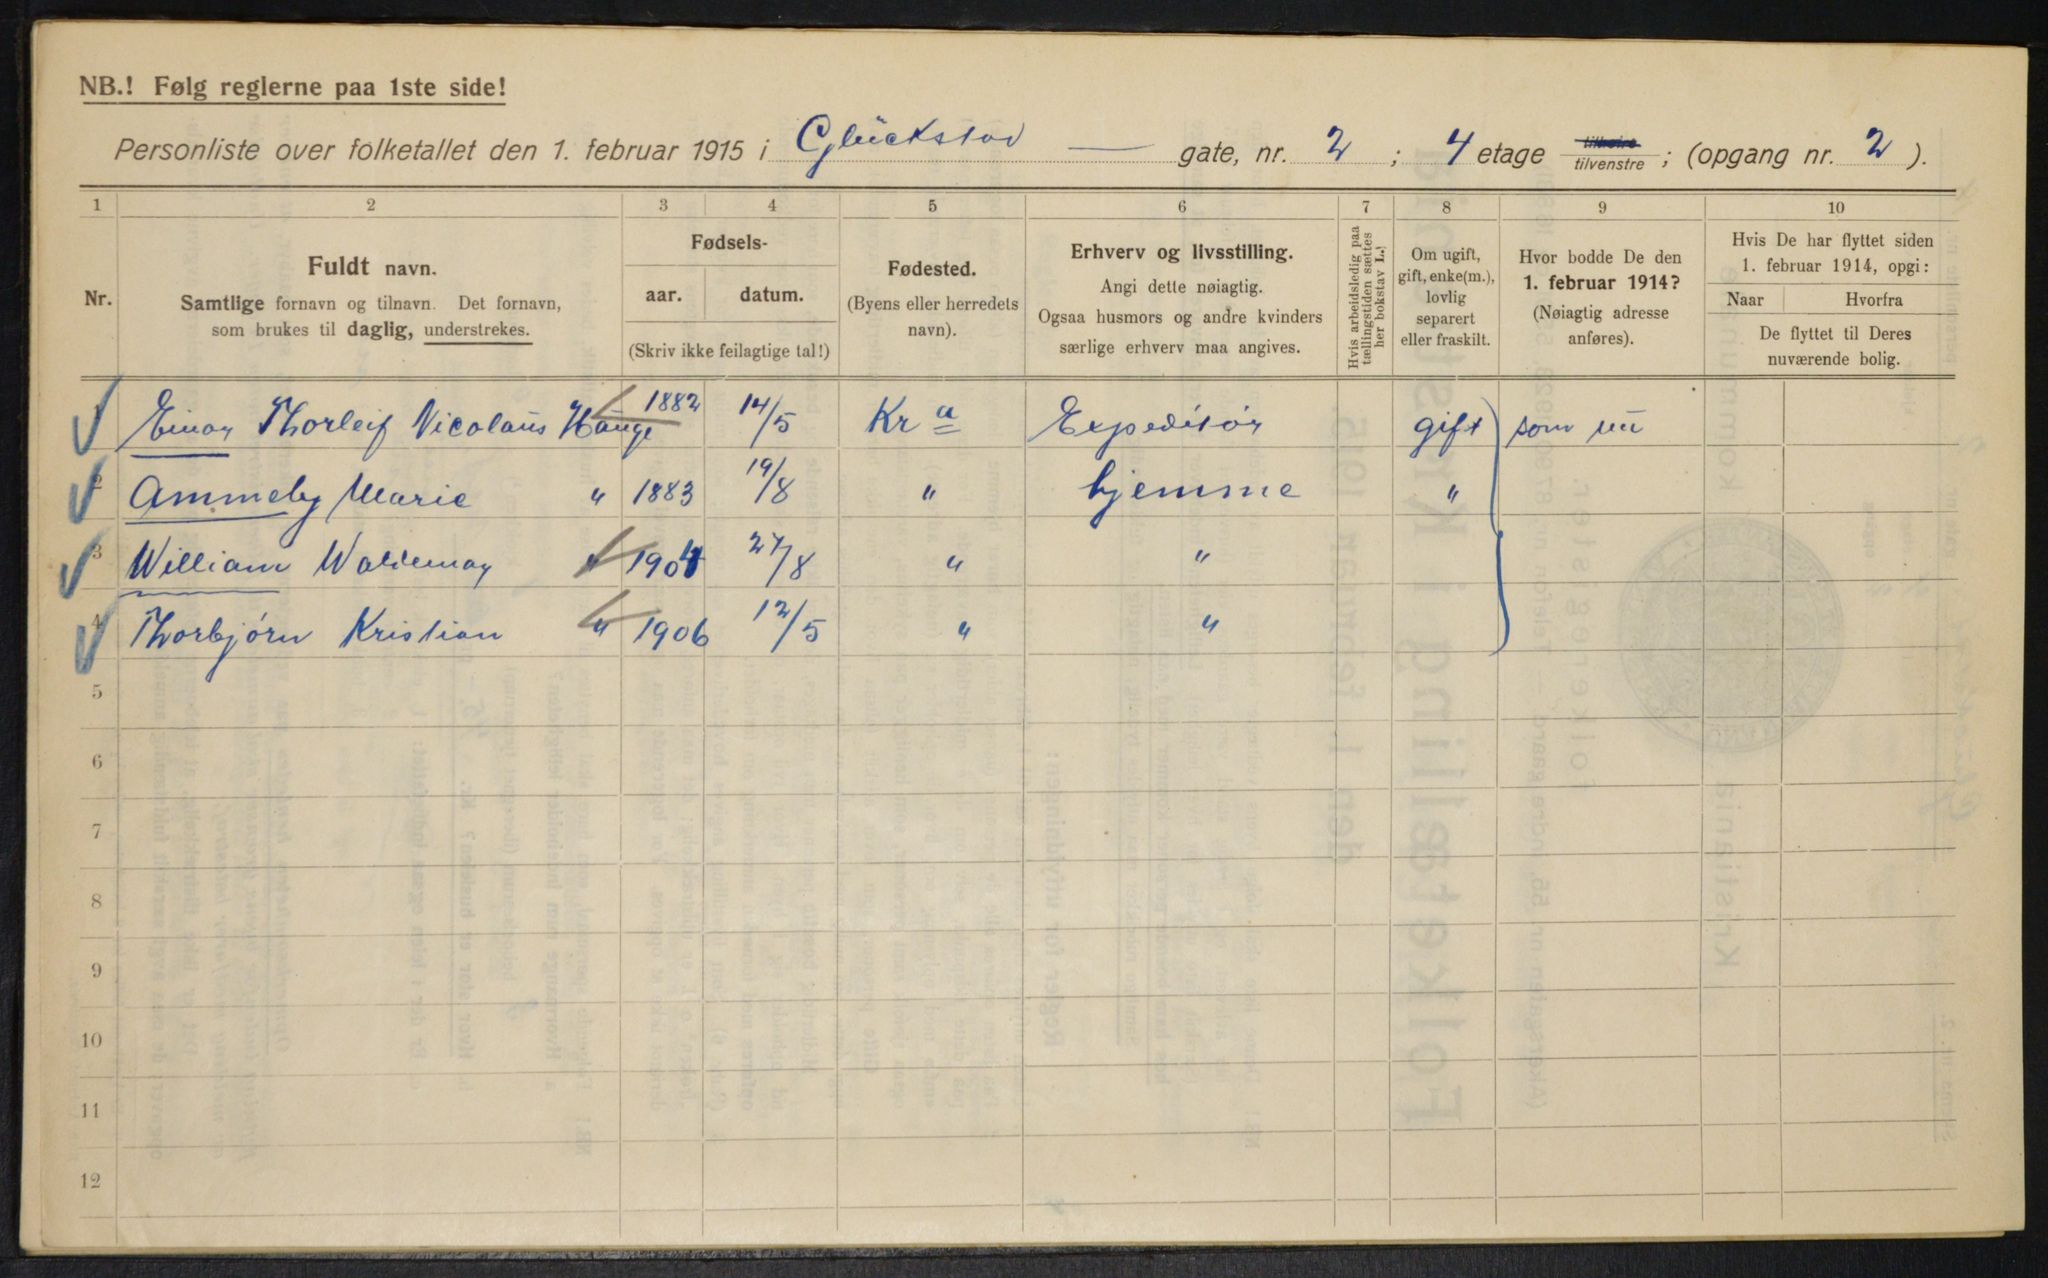 NB.! Følg reglerne paa 1ste side!
Personliste over folketallet den 1. februar 1915 i Glückstad — gate, nr. 2 ; 4 etage tilhøire tilvenstre ; (opgang nr. 2 ).
1 2 3 4 5 6 7 8 9 10
Nr.
Fuldt navn.
Samtlige fornavn og tilnavn. Det fornavn,
som brukes til daglig, understrekes.
Fødsels-
aar. datum.
(Skriv ikke feilagtige tal!)
Fødested.
(Byens eller herredets
navn).
Erhverv og livsstilling.
Angi dette nøiagtig.
Ogsaa husmors og andre kvinders
særlige erhverv maa angives.
Hvis arbeidsledig paa
tællingstiden sættes
her bokstav L.)
Om ugift,
gift, enke(m.),
lovlig
separert
eller fraskilt.
Hvor bodde De den
1. februar 1914?
(Nøiagtig adresse
anføres).
Hvis De har flyttet siden
1. februar 1914, opgi:
Naar Hvorfra
De flyttet til Deres
nuværende bolig.
1 Einar Thorleif Nicolaus Hauge 1882 14/5 Kra Expeditør gift som nu
2 Ammeby Marie " 1883 19/8 " hjemme "
3 William Waldemar " 1904 27/8 " "
4 Thorbjørn Kristian " 1906 12/5 " "
5
6
7
8
9
10
11
12